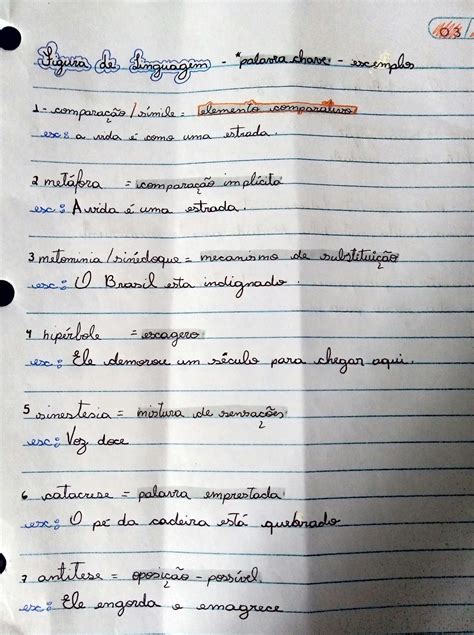 03
Figura de Linguagem - *palavra chave - exemplos
1- comparação / símile = elemento comparativo
ex: a vida é como uma estrada.
2 metáfora = comparação implícita
ex: A vida é uma estrada.
3. metonimia / sinédoque = mecanismo de substituição
ex: O Brasil esta indignado.
4 hipérbole = exagero
ex: Ele demorou um século para chegar aqui.
5 sinestesia = mistura de sensações
ex: Voz doce
6 catacrese = palavra emprestada
ex: O pé da cadeira está quebrado
7 antítese = oposição - possível.
ex: Ele engorda e emagrece